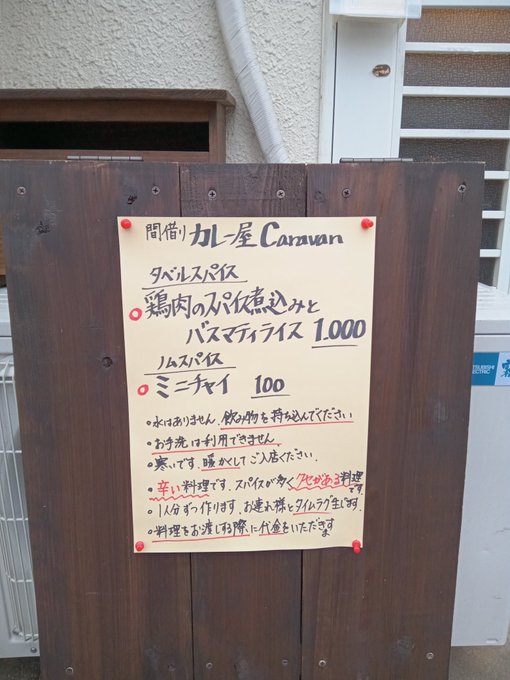 間借り カレー屋 Caravan
タベルスパイス
鶏肉のスパイス煮込みと
バスマティライス 1.000
ノムスパイス
ミニチャイ 100
・水はありません。飲み物を持ち込んでください
・お手洗は利用できません。
・寒いです。暖かくしてご入店ください。
・辛い料理です。スパイスが多くクセがある料理です。
・1人分ずつ作ります。お連れ様とタイムラグ生じます。
・料理をお渡しする際に代金をいただきます
MITSUBISHI
ELECTRIC